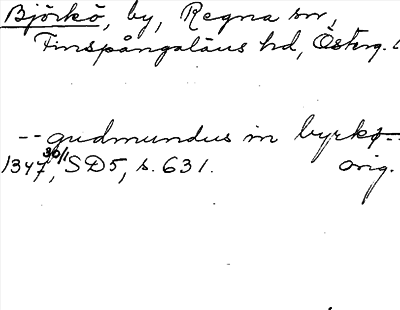 Björkö, by, Regna sn,
Finspångaläns hd, Österg.
-- gudmundus in byrkø --
1347 30/1, SD5, s. 631. orig.